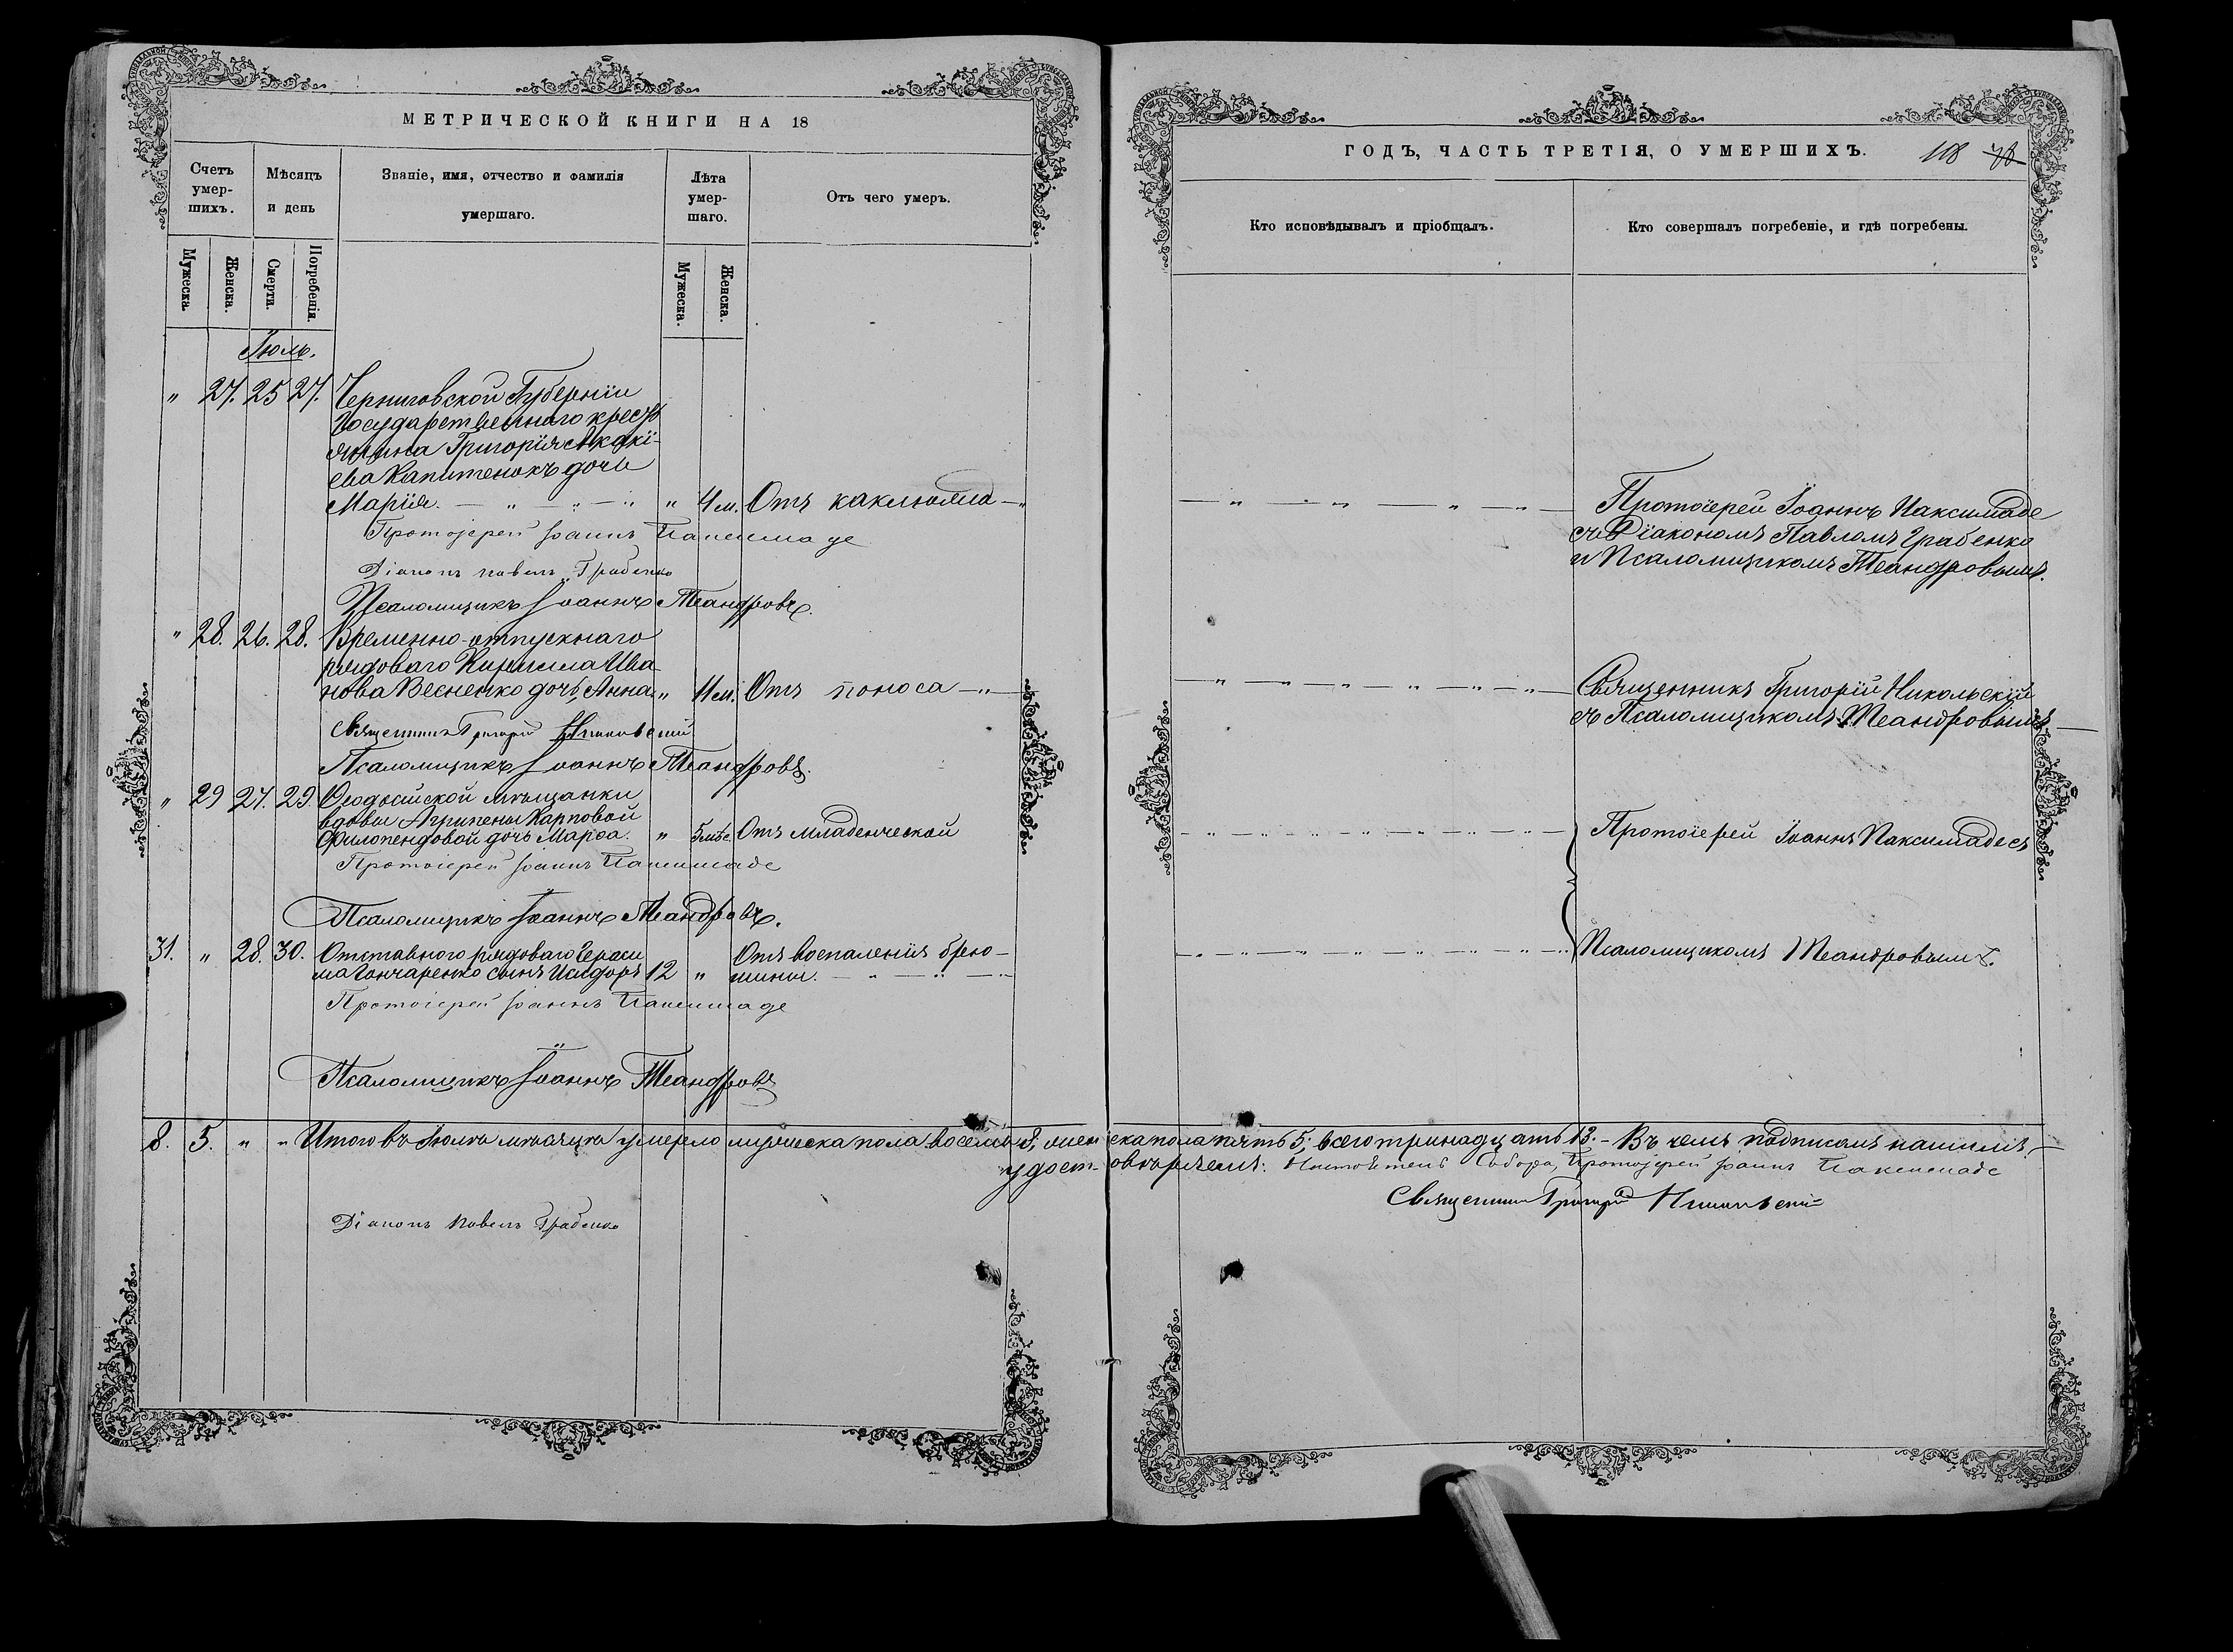 МЕТРИЧЕСКОЙ КНИГИ НА 18
Счетъ умер-шихъ.
Мѣсяцъ и день
Званіе, имя, отчество и фамилія умершаго.
Лѣта умер-шаго.
Отъ чего умеръ.
Мужеска.
Женска.
Смерти.
Погребенія.
Мужеска.
Женска.
Іюль.
" 27. 25 27. Черниговской Губерніи
Государственнаго кресть
янина Григорія Акакі-
ева Капитенокъ дочь
Марія. — " — " — " " 4 м. Отъ коклюша — "
Протоіерей Іоаннъ Паксимаде
Діаконъ Павелъ Грабенко
Псаломщикъ Іоаннъ Теандровъ.
" 28. 26. 28. Временно-отпускнаго
рядоваго Кирилла Ива-
нова Весненко дочь Анна " 11 м. Отъ поноса — "
Священникъ Григорій Никольскій
Псаломщикъ Іоаннъ Теандровъ.
" 29 27. 29. Ѳеодосійской мѣщанки
вдовы Агрипены Карповой
Филопендовой дочь Марѳа. " 5 мѣс. Отъ младенческой
Протоіерей Іоаннъ Паксимаде
Псаломщикъ Іоаннъ Теандровъ.
31. " 28. 30. Отставного рядоваго Гераси
ма Гончаренко сынъ Исидоръ 12 " Отъ воспаленія брю-
шины. — " — " — "
Протоіерей Іоаннъ Паксимаде
Псаломщикъ Іоаннъ Теандровъ
8. 5. " " Итого въ Іюлѣ мѣсяцѣ умерло мужеска пола восемь 8, женска пола пять 5; всего тринадцать 13. – Въ чемъ подписомъ нашимъ
удостовѣряемъ: Настоятель Собора, Протоіерей Іоаннъ Паксимаде
Священникъ Григорій Никольскій
Діаконъ Павелъ Грабенко
ГОДЪ, ЧАСТЬ ТРЕТІЯ, О УМЕРШИХЪ.
108
Кто исповѣдывалъ и пріобщалъ.
Кто совершалъ погребеніе, и гдѣ погребены.
Протоіерей Іоаннъ Паксимаде
съ Діакономъ Павломъ Грабенко
и Псаломщикомъ Теандровымъ.
Священникъ Григорій Никольскій
съ Псаломщикомъ Теандровымъ
Протоіерей Іоаннъ Паксимаде съ
Псаломщикомъ Теандровымъ.